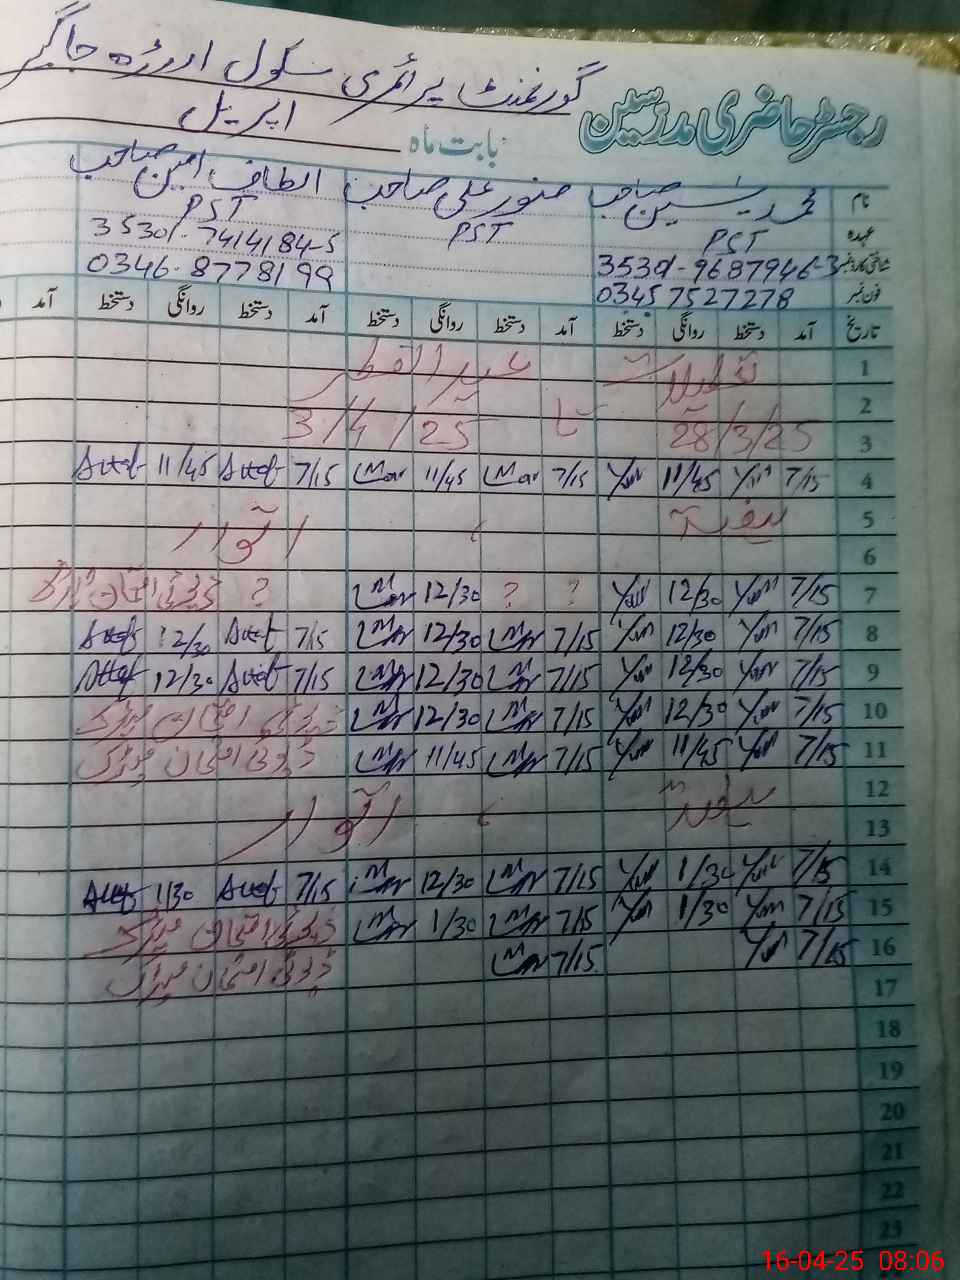 گورنمنٹ پرائمری سکول اورڑہ جاگیر
رجسٹر حاضری مدرسین
بابت ماہ اپریل
نام محمد یٰسین صاحب منور علی صاحب الطاف امین صاحب
عہدہ PST PST PST
شناختی کارڈ نمبر 35301-9687946-3 35301-7414184-5
فون نمبر 0345 7527278 0346-8778199
تاریخ آمد دستخط روانگی دستخط آمد دستخط روانگی دستخط آمد دستخط روانگی دستخط آمد
1 تعطیلات عیدالفطر
2
3 28/3/25 تا 3/4/25
4 7/15 Ym 11/45 Ym 7/15 Mar 11/45 Mar 7/15 Altaf 11/45 Altaf
5 ہفتہ ، اتوار
6
7 7/15 Ym 12/30 Ym ? ? 12/30 Mar ? ڈیوٹی امتحان میٹرک
8 7/15 Ym 12/30 Ym 7/15 Mar 12/30 Mar 7/15 Altaf 12/30 Altaf
9 7/15 Ym 12/30 Ym 7/15 Mar 12/30 Mar 7/15 Altaf 12/30 Altaf
10 7/15 Ym 12/30 Ym 7/15 Mar 12/30 Mar ڈیوٹی امتحان میٹرک
11 7/15 Ym 11/45 Ym 7/15 Mar 11/45 Mar ڈیوٹی امتحان میٹرک
12 ہفتہ ، اتوار
13
14 7/15 Ym 1/30 Ym 7/15 Mar 12/30 Mar 7/15 Altaf 1/30 Altaf
15 7/15 Ym 1/30 Ym 7/15 Mar 1/30 Mar ڈیوٹی امتحان میٹرک
16 7/15 Ym 7/15 Mar ڈیوٹی امتحان میٹرک
17
18
19
20
21
22
23
16-04-25 08:06